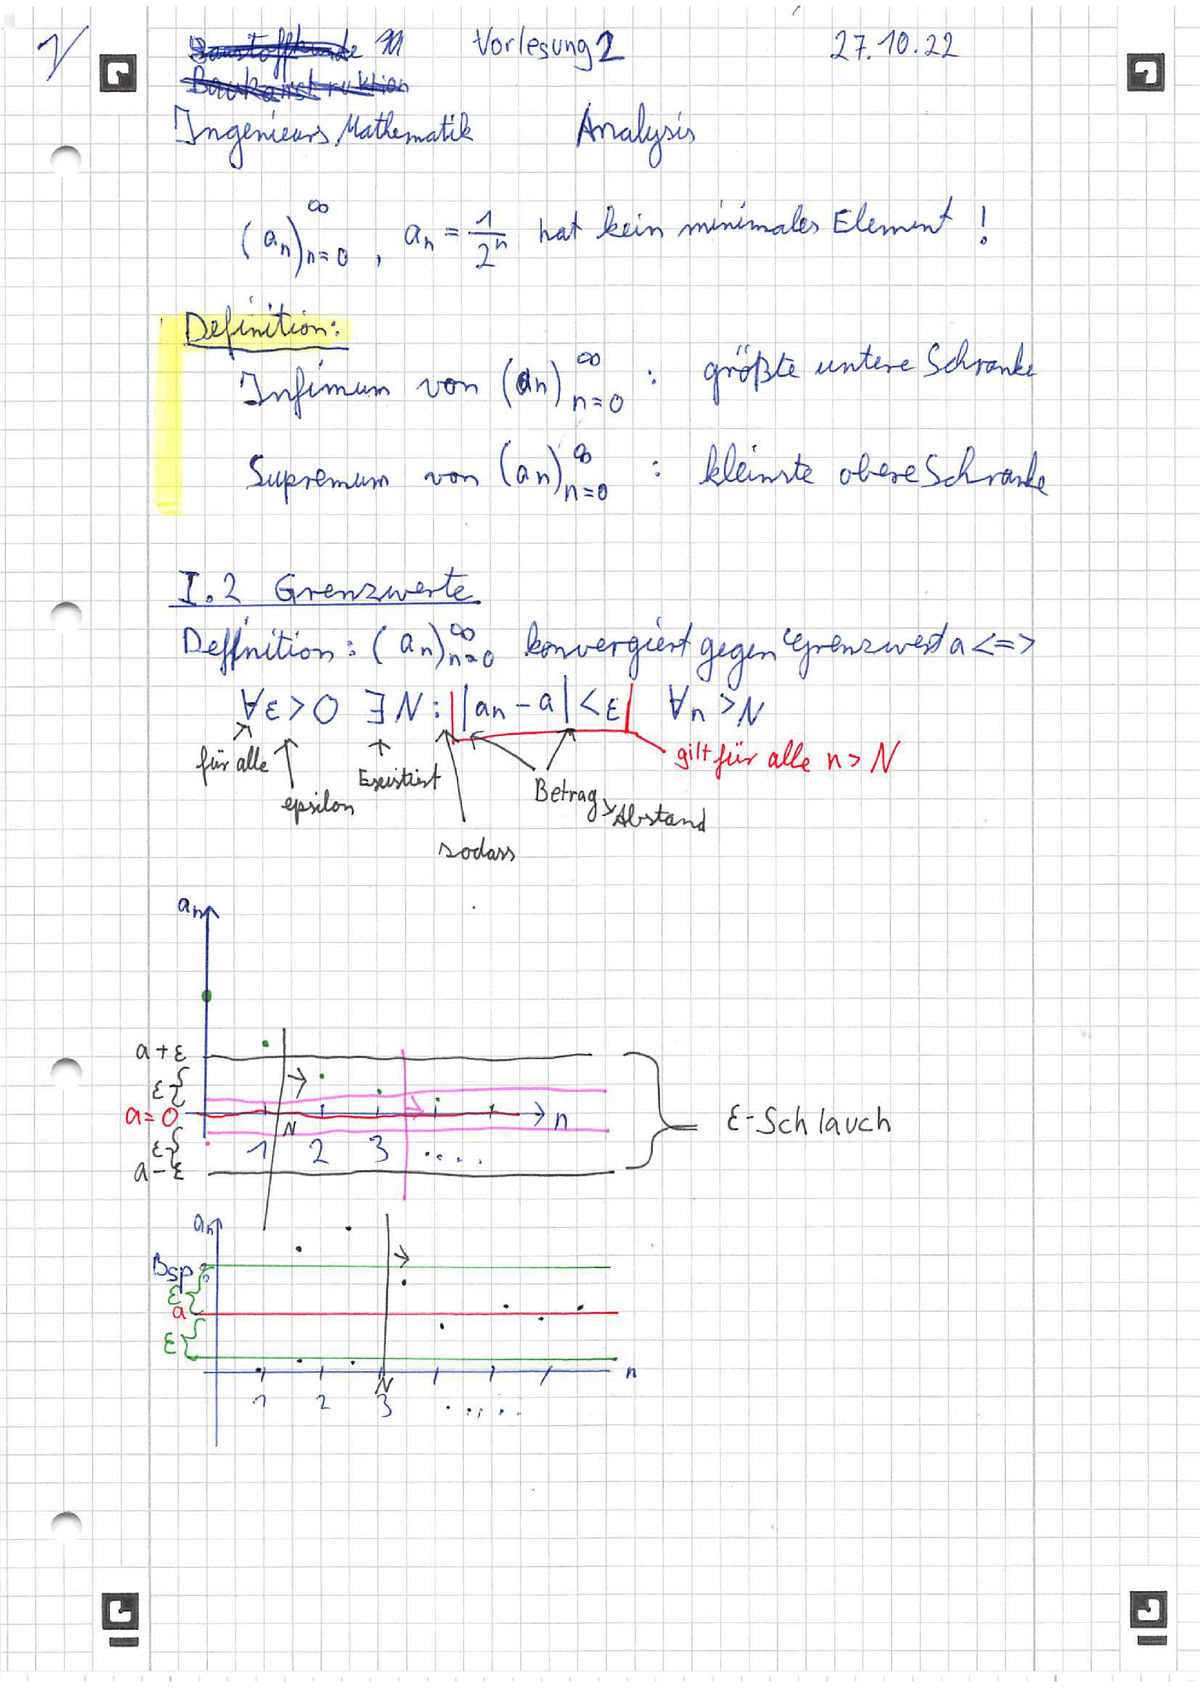 1/
Baustoffkunde Vorlesung 2 27.10.22
Baukonstruktion
Ingenieurs Mathematik Analysis
(an)∞n=0 , an = 1/2ⁿ hat kein minimales Element !
Definition:
Infimum von (an)∞n=0 : größte untere Schranke
Supremum von (an)∞n=0 : kleinste obere Schranke
I.2 Grenzwerte
Deffnition: (an)∞n=0 konvergiert gegen Grenzwert a <=>
∀ε>0 ∃N: |an - a| < ε ∀n >N
für alle epsilon Exisitiert sodass Betrag Abstand gilt für alle n > N
an
a+ε
ε{
a=0 n
N
ε{ 1 2 3 ....
a-ε
ε-Schlauch
an
Bsp:
ε{
a
ε{
n
N
1 2 3 .....